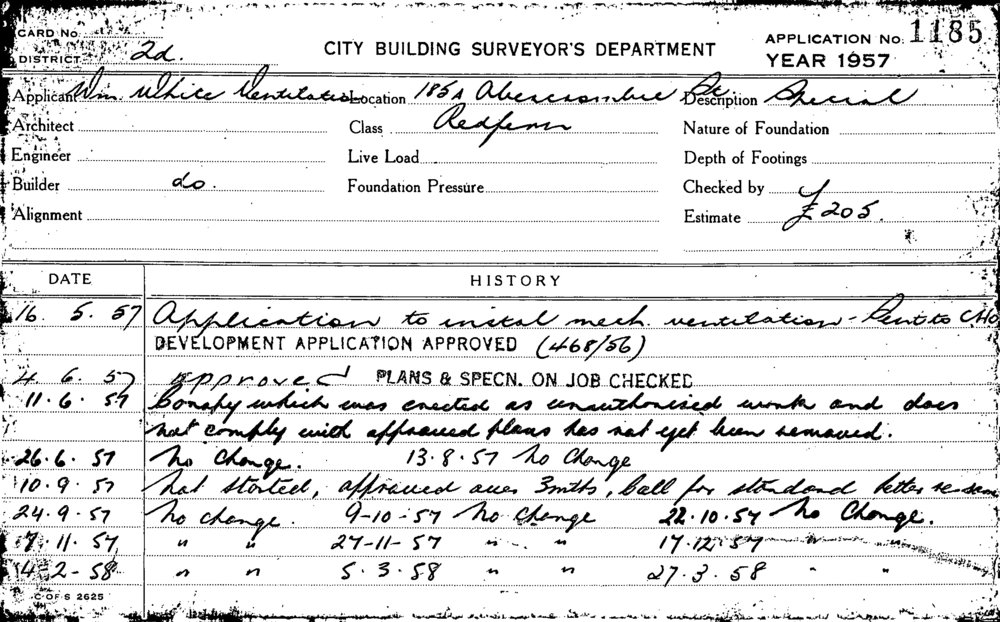 CARD No.
CITY BUILDING SURVEYOR'S DEPARTMENT
APPLICATION No. 1185
DISTRICT 2d.
YEAR 1957
Applicant Wm White Ventilation Location 185A Abercrombie St Description Special
Architect Class Redfern Nature of Foundation
Engineer Live Load Depth of Footings
Builder do. Foundation Pressure Checked by
Alignment Estimate £205.
DATE HISTORY
16. 5. 57 Application to instal mech. ventilation - Sent to CHO
DEVELOPMENT APPLICATION APPROVED (468/56)
4 6. 57 approved PLANS & SPECN. ON JOB CHECKED
11. 6. 57 Canopy which was erected as unauthorised work and does
not comply with approved plans has not yet been removed.
26. 6. 57 No Change. 13. 8. 57 No Change
10. 9. 57 Not started, approved over 3mths, Call for standard letter re same
24. 9. 57 No change. 9-10-57 No Change 22. 10. 57 No Change.
7. 11. 57 " " 27-11-57 " " 17.12.57 " "
14-2-58 " " 5. 3. 58 " " 27. 3. 58 " "
C OF S 2625